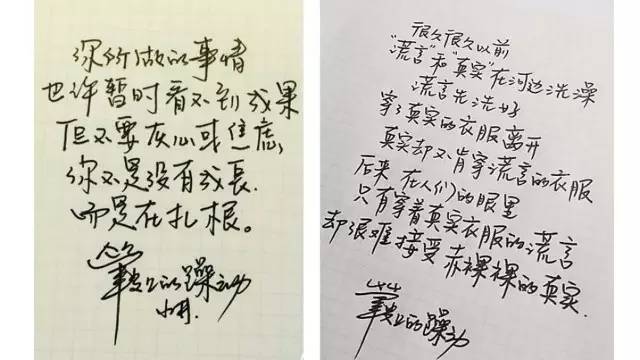 你所做的事情
也许暂时看不到成果
但不要灰心或焦虑，
你不是没有成长.
而是在扎根。
笔尖上的躁动
很久很久以前
“谎言”和“真实”在河边洗澡
谎言先洗好
穿了真实的衣服离开
真实却不肯穿谎言的衣服
后来 在人们的眼里
只有穿着真实衣服的谎言
却很难接受赤裸裸的真实.
笔尖上的躁动